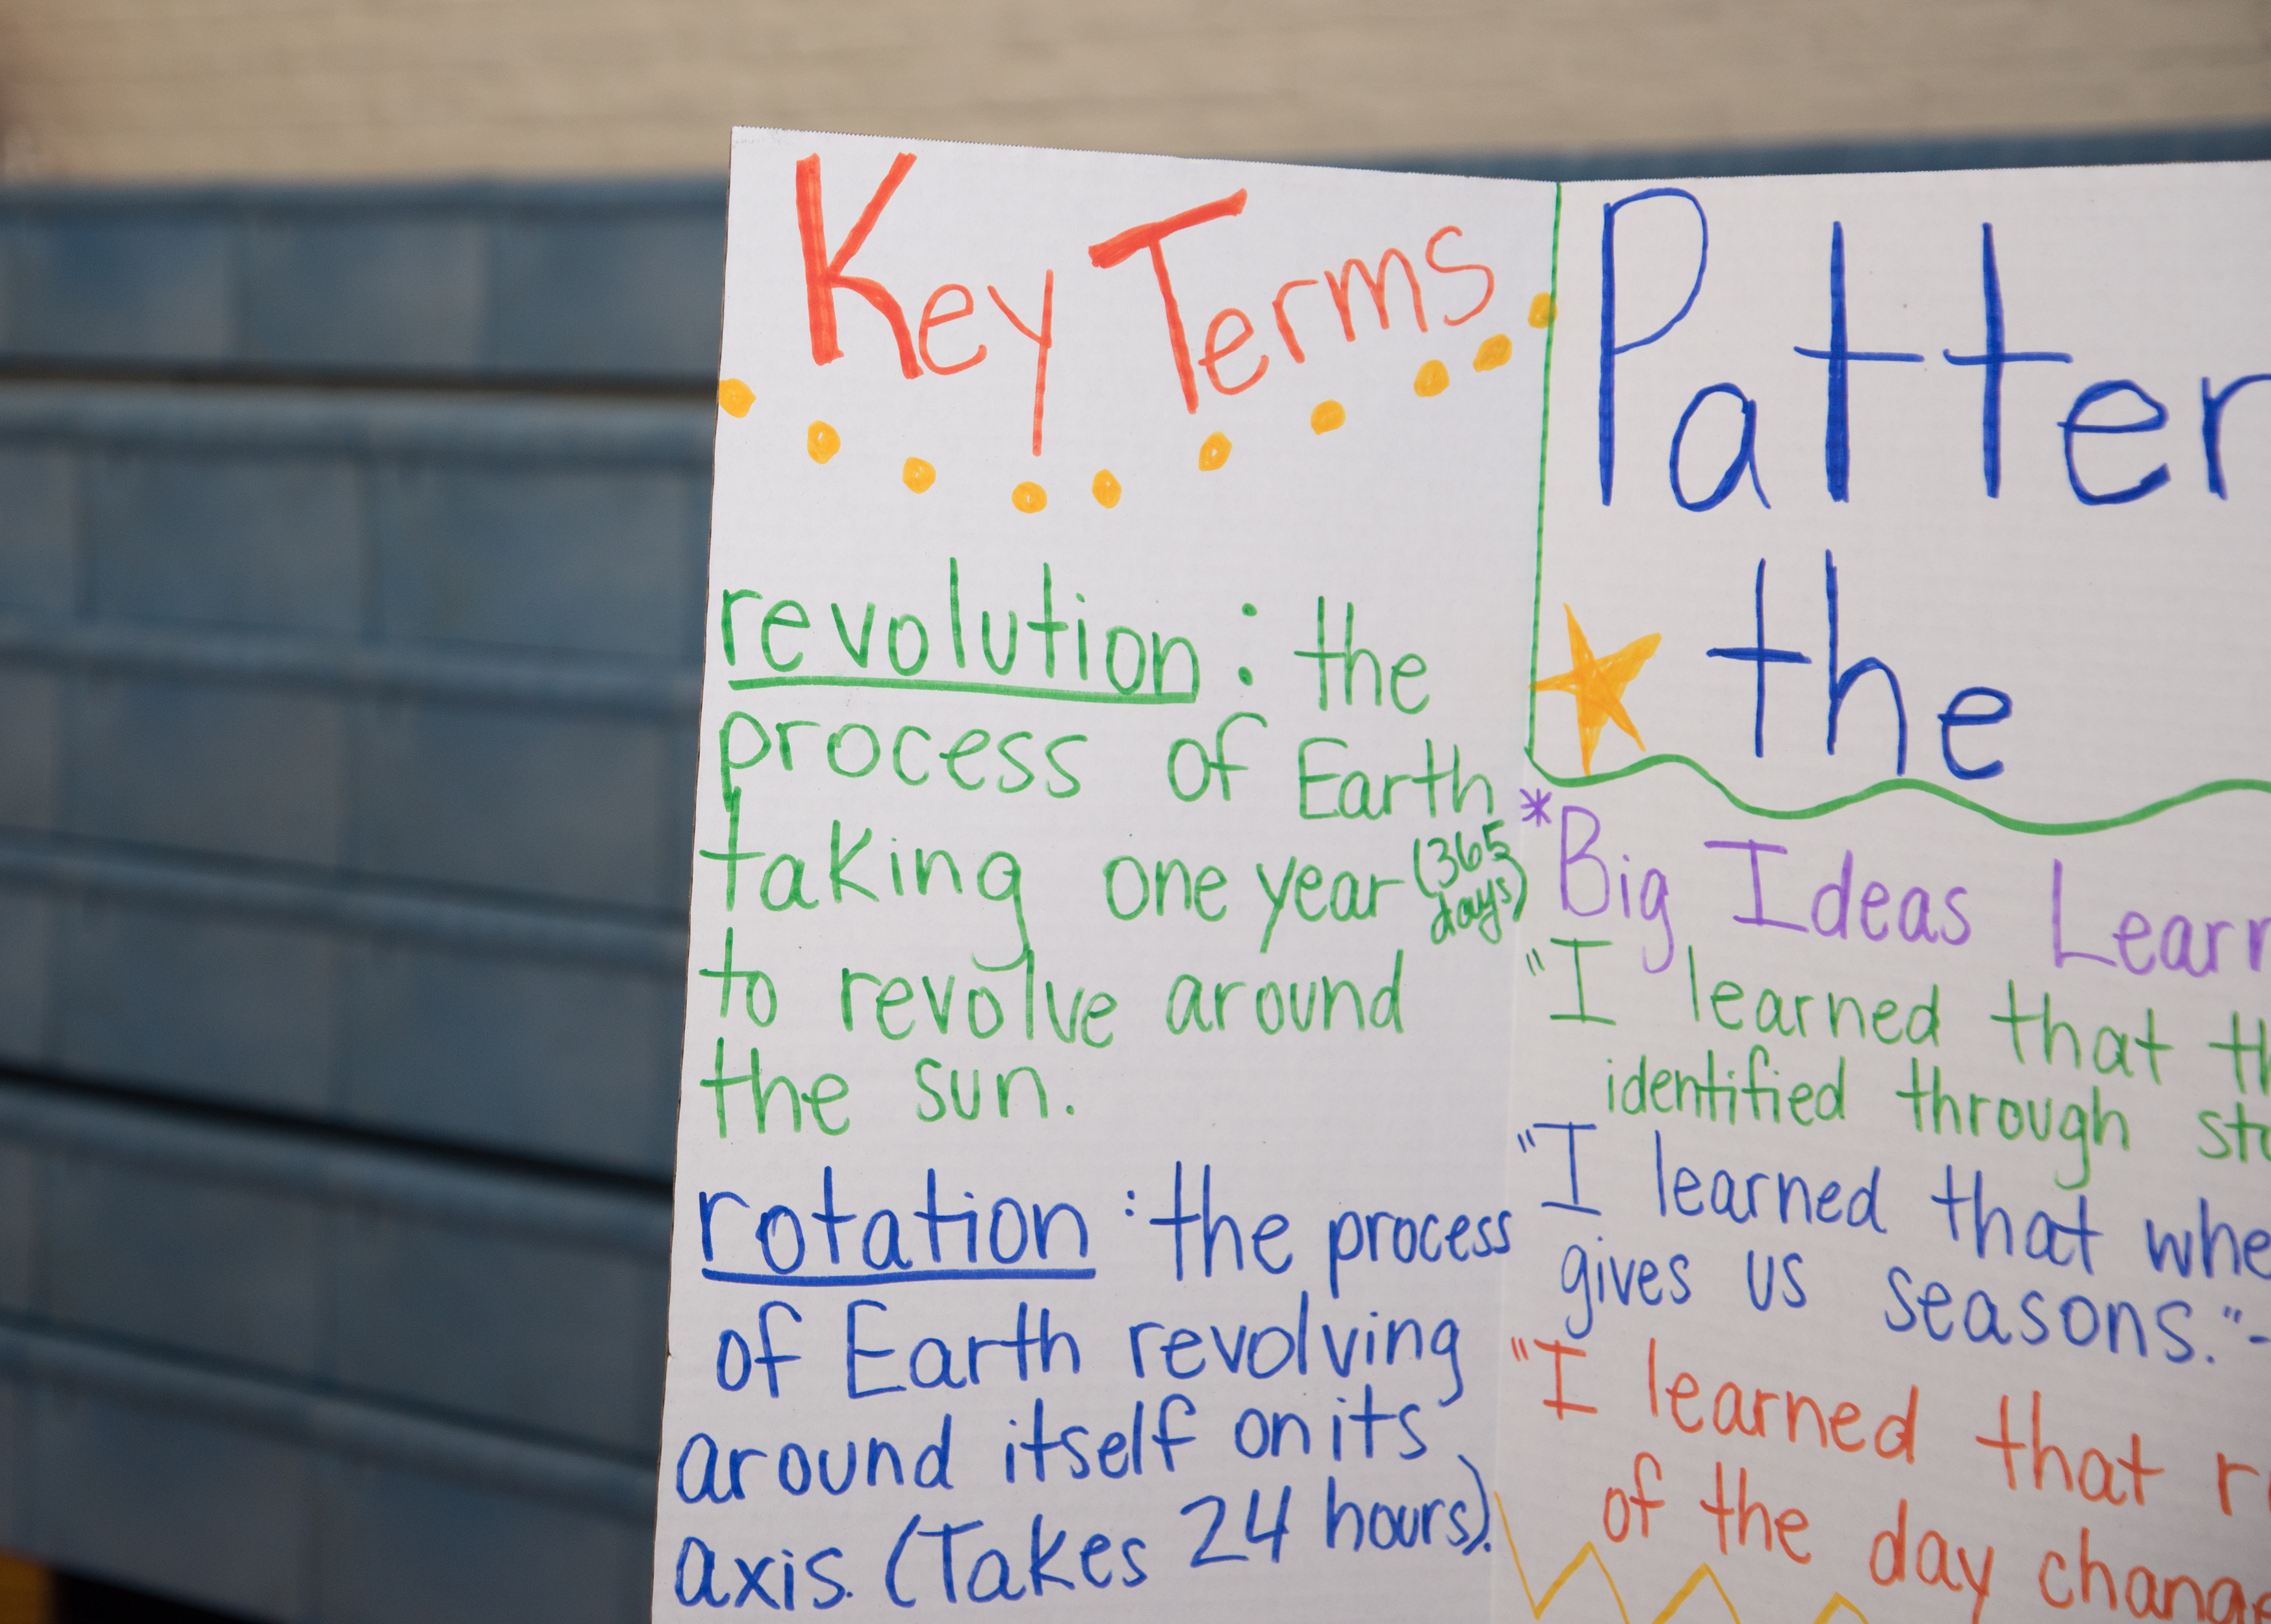 Key Terms
revolution: the
process of Earth
taking one year (365
days)
to revolve around
the sun.
rotation: the process
of Earth revolving
around itself on its
axis. (Takes 24 hours).
Patter
the
*Big Ideas Lear
"I learned that th
identified through
"I learned that whe
gives us seasons."-
"I learned that
of the day change